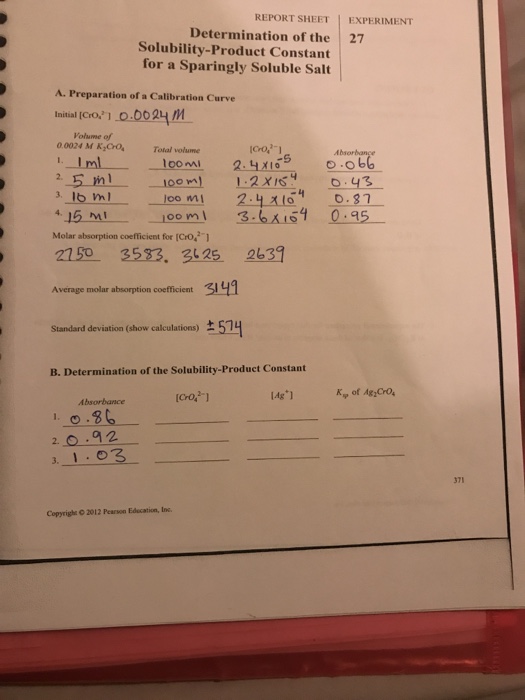 REPORT SHEET | EXPERIMENT
Determination of the 27
Solubility-Product Constant
for a Sparingly Soluble Salt
A. Preparation of a Calibration Curve
Initial [CrO₄²⁻] 0.0024 M
Volume of
0.0024 M K₂CrO₄ Total volume [CrO₄²⁻] Absorbance
1. 1 ml 100 ml 2.4 x 10⁻⁵ 0.066
2. 5 ml 100 ml 1.2 x 10⁻⁴ 0.43
3. 10 ml 100 ml 2.4 x 10⁻⁴ 0.87
4. 15 ml 100 ml 3.6 x 10⁻⁴ 0.95
Molar absorption coefficient for [CrO₄²⁻]
2750 3583. 3625 2639
Average molar absorption coefficient 3149
Standard deviation (show calculations) ± 574
B. Determination of the Solubility-Product Constant
Absorbance [CrO₄²⁻] [Ag⁺] Kₛₚ of Ag₂CrO₄
1. 0.86
2. 0.92
3. 1.03
371
Copyright © 2012 Pearson Education, Inc.